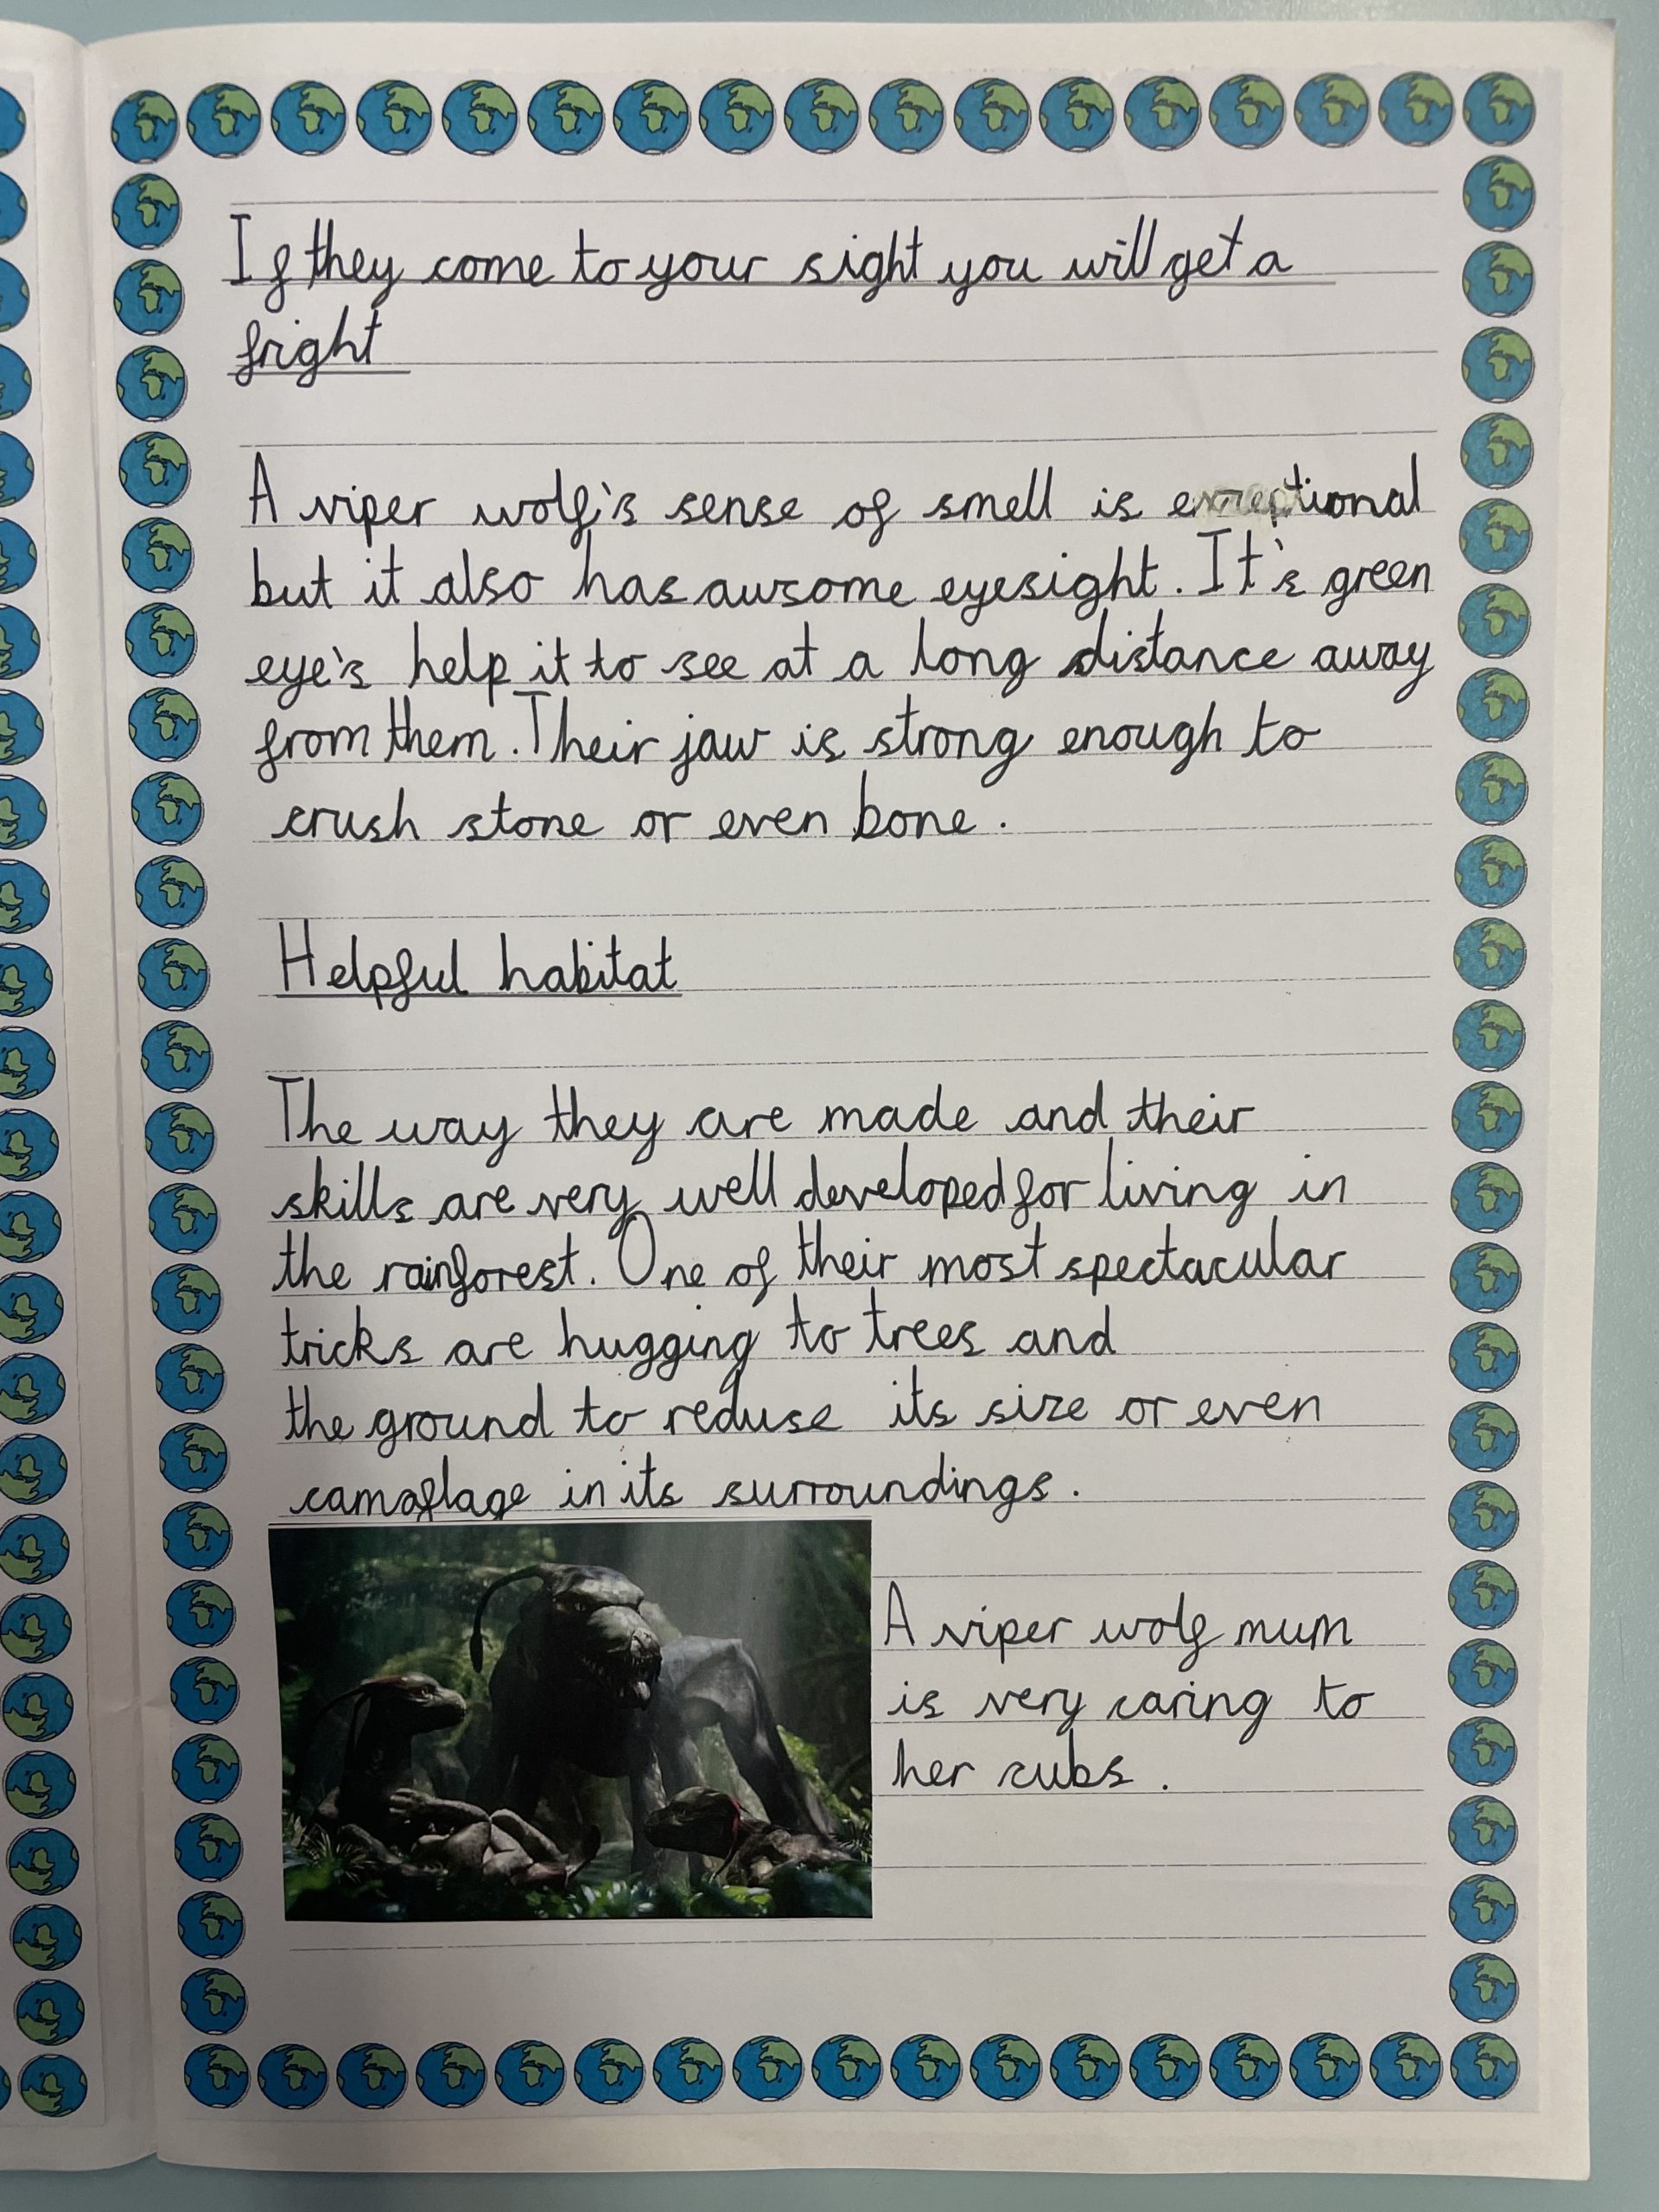 If they come to your sight you will get a
fright
A viper wolf's sense of smell is exceptional
but it also has awsome eyesight. It's green
eye's help it to see at a long distance away
from them. Their jaw is strong enough to
crush stone or even bone.
Helpful habitat
The way they are made and their
skills are very well developed for living in
the rainforest. One of their most spectacular
tricks are hugging to trees and
the ground to reduse its size or even
camoflage in its surroundings.
A viper wolf mum
is very caring to
her cubs.